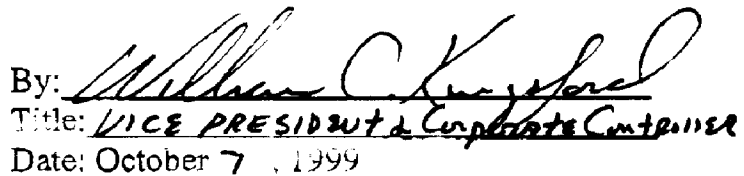 By: William C. Kingsford
Title: VICE PRESIDENT & Corporate Controller
Date: October 7, 1999